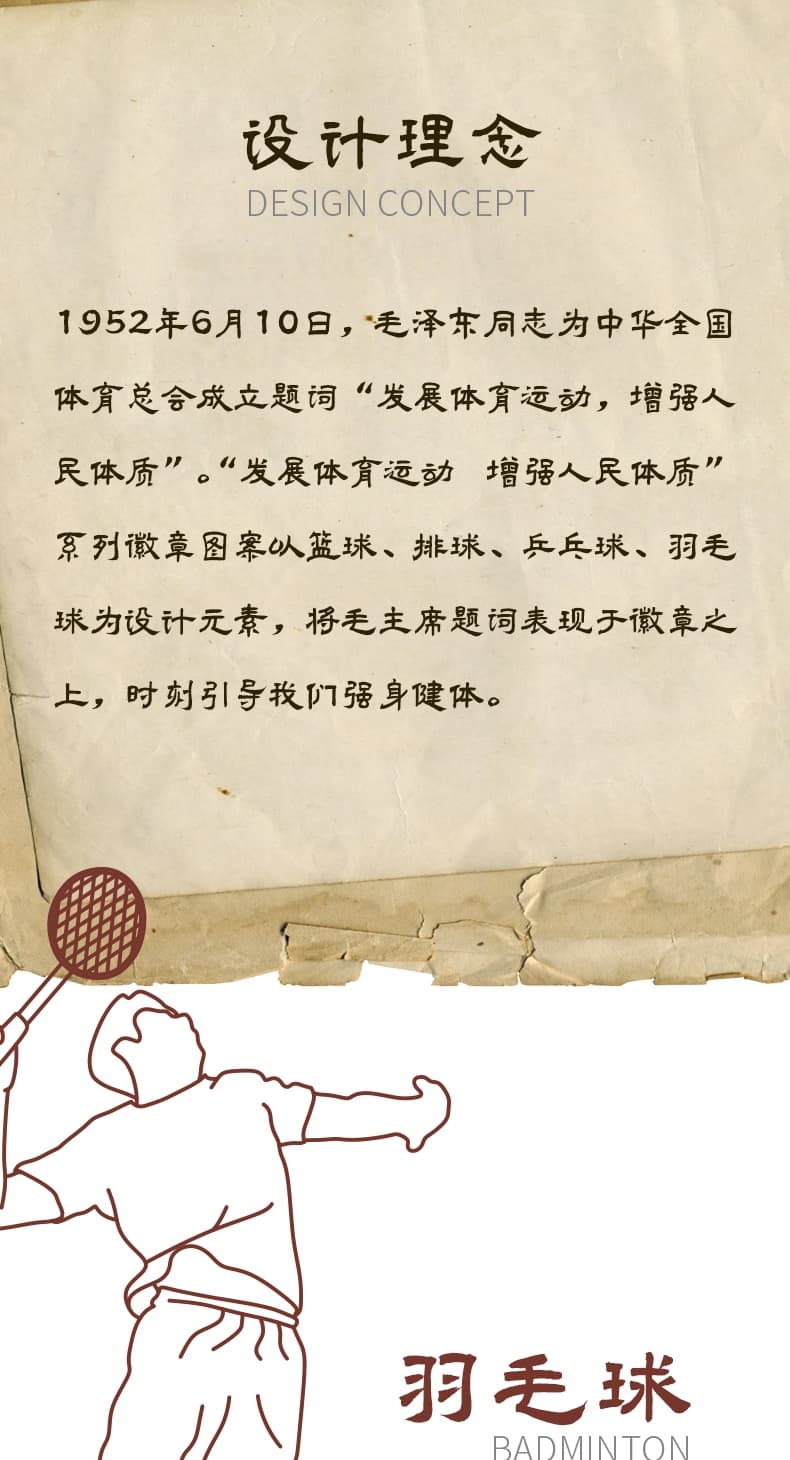 设计理念
DESIGN CONCEPT
1952年6月10日，毛泽东同志为中华全国
体育总会成立题词“发展体育运动，增强人
民体质”。“发展体育运动 增强人民体质”
系列徽章图案以篮球、排球、乒乓球、羽毛
球为设计元素，将毛主席题词表现于徽章之
上，时刻引导我们强身健体。
羽毛球
BADMINTON